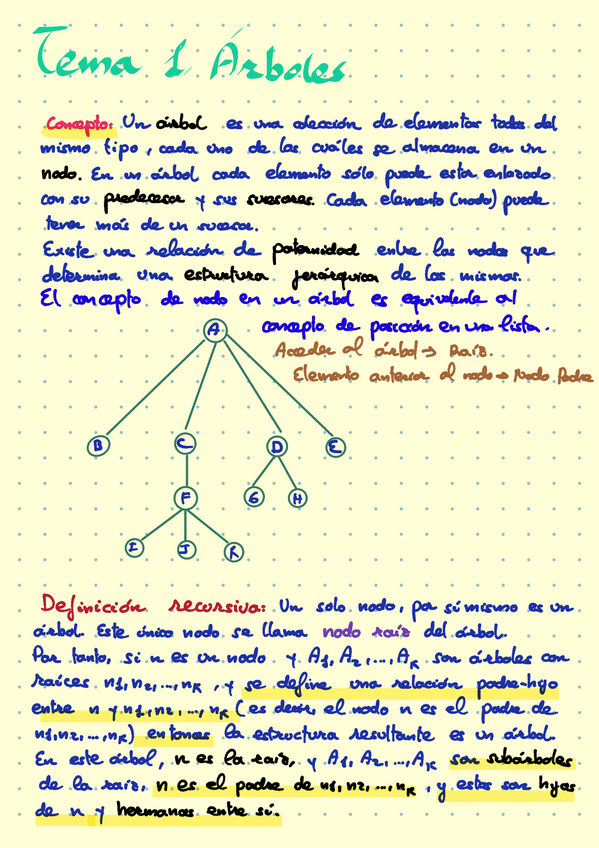 Tema 1 Árboles
Concepto: Un árbol es una colección de elementos todos del
mismo tipo, cada uno de los cuáles se almacena en un
nodo. En un árbol cada elemento sólo puede estar enlazado
con su predecesor y sus sucesores. Cada elemento (nodo) puede
tener más de un sucesor.
Existe una relación de paternidad entre los nodos que
determina una estructura jerárquica de los mismos.
El concepto de nodo en un árbol es equivalente al
concepto de posición en una lista.
Acceder al árbol → Raíz.
Elemento anterior al nodo → Nodo Padre
A
B C D E
F G H
I J K
Definición recursiva: Un solo nodo, por sí mismo es un
árbol. Este único nodo se llama nodo raíz del árbol.
Por tanto, si n es un nodo y A1, A2, ..., AK son árboles con
raíces n1, n2, ..., nK, y se define una relación padre-hijo
entre n y n1, n2, ..., nK (es decir, el nodo n es el padre de
n1, n2, ..., nK) entonces la estructura resultante es un árbol.
En este árbol, n es la raíz, y A1, A2, ..., AK son subárboles
de la raíz, n es el padre de n1, n2, ..., nK, y estos son hijos
de n y hermanos entre sí.